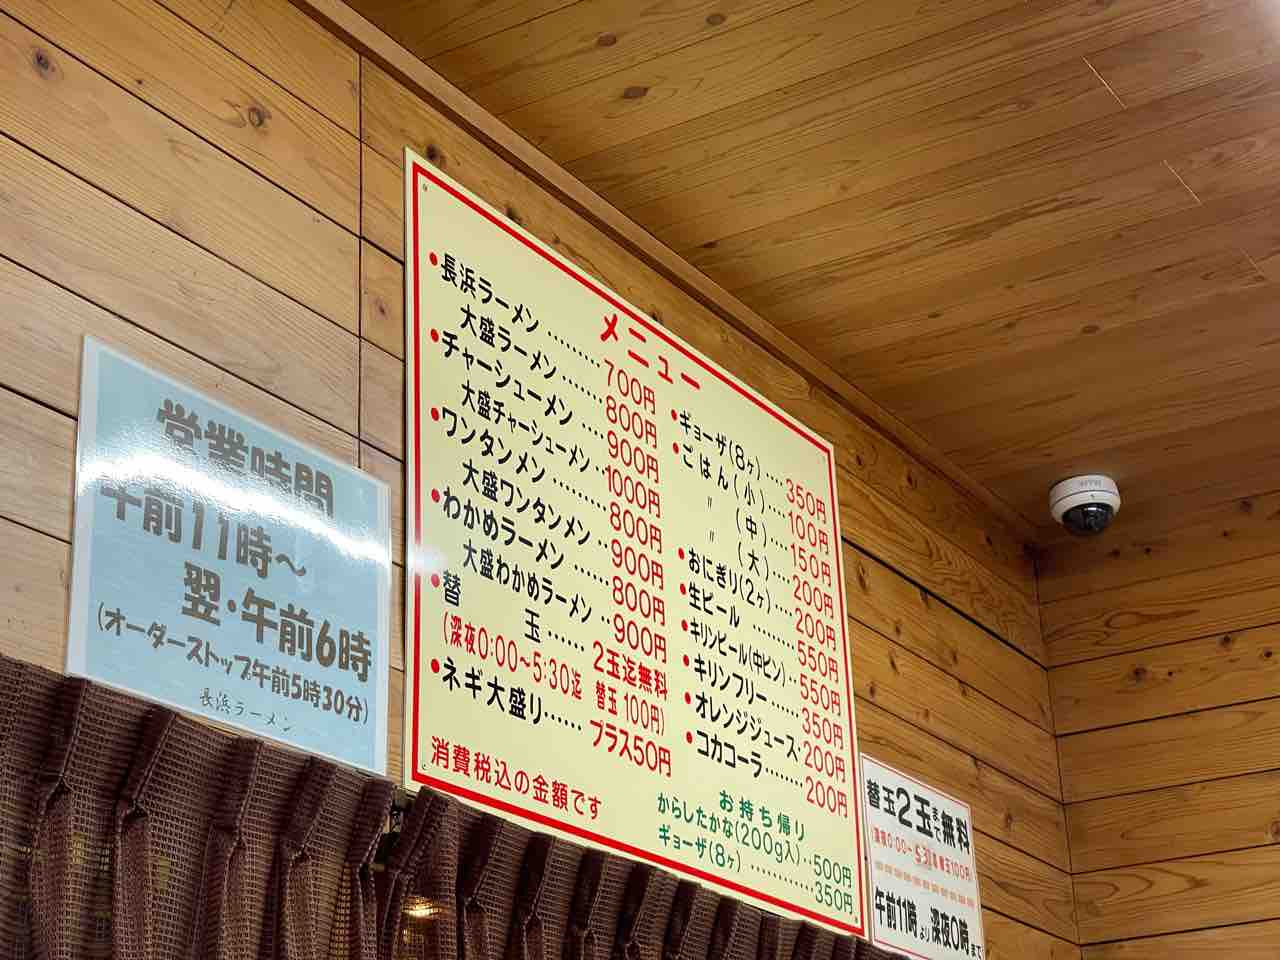 営業時間
午前11時～
翌・午前6時
(オーダーストップ午前5時30分)
長浜ラーメン
メニュー
●長浜ラーメン………700円
大盛ラーメン……800円
●チャーシューメン…900円
大盛チャーシューメン‥1000円
●ワンタンメン………800円
大盛ワンタンメン‥900円
●わかめラーメン……800円
大盛わかめラーメン‥900円
●替 玉……2玉迄無料
(深夜0:00～5:30迄 替玉100円)
●ネギ大盛り……プラス50円
消費税込の金額です
●ギョーザ(8ヶ)…350円
●ごはん(小)…100円
〃 (中)…150円
〃 (大)…200円
●おにぎり(2ヶ)…200円
●生ビール ………550円
●キリンビール(中ビン)‥550円
●キリンフリー……350円
●オレンジジュース‥200円
●コカコーラ………200円
お持ち帰り
からしたかな(200g入)‥500円
ギョーザ(8ヶ)…………350円
替玉2玉まで無料
(深夜0:00～5:30迄 替玉100円)
午前11時より深夜0時まで